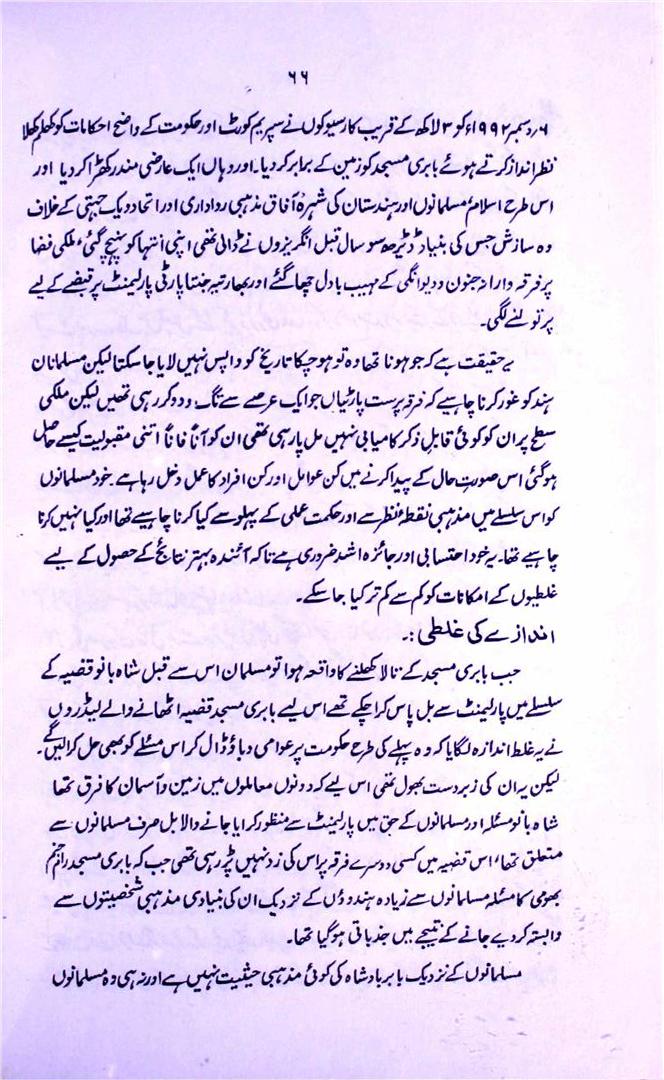 ۶۶
۶ر دسمبر ۱۹۹۲ء کو ۳ لاکھ کے قریب کارسیوکوں نے سپریم کورٹ اور حکومت کے واضح احکامات کو کھلم کھلا
نظر انداز کرتے ہوئے بابری مسجد کو زمین کے برابر کر دیا۔ اور وہاں ایک عارضی مندر کھڑا کر دیا اور
اس طرح اسلام، مسلمانوں اور ہندستان کی شہرۂ آفاق مذہبی رواداری اور اتحاد و یک جہتی کے خلاف
وہ سازش جس کی بنیاد ڈیڑھ سو سال قبل انگریزوں نے ڈالی تھی اپنی انتہا کو پہنچ گئی، ملکی فضا
پر فرقہ وارانہ جنون و دیوانگی کے مہیب بادل چھا گئے اور بھارتیہ جنتا پارٹی پارلیمنٹ پر قبضے کے لیے
پر تولنے لگی۔
یہ حقیقت ہے کہ جو ہونا تھا وہ تو ہو چکا تاریخ کو واپس نہیں لایا جا سکتا لیکن مسلمانان
ہند کو غور کرنا چاہیے کہ فرقہ پرست پارٹیاں جو ایک عرصے سے تگ و دو کر رہی تھیں لیکن ملکی
سطح پر ان کو کوئی قابلِ ذکر کامیابی نہیں مل پا رہی تھی ان کو آناً فاناً اتنی مقبولیت کیسے حاصل
ہو گئی اس صورتِ حال کے پیدا کرنے میں کن عوامل اور کن افراد کا عمل دخل رہا ہے۔ خود مسلمانوں
کو اس سلسلے میں مذہبی نقطۂ نظر سے اور حکمت عملی کے پہلو سے کیا کرنا چاہیے تھا اور کیا نہیں کرنا
چاہیے تھا۔ یہ خود احتسابی اور جائزہ اشد ضروری ہے تاکہ آئندہ بہتر نتائج کے حصول کے لیے
غلطیوں کے امکانات کو کم سے کم تر کیا جا سکے۔
اندازے کی غلطی :۔
جب بابری مسجد کے تالا کھلنے کا واقعہ ہوا تو مسلمان اس سے قبل شاہ بانو قضیہ کے
سلسلے میں پارلیمنٹ سے بل پاس کرا چکے تھے اس لیے بابری مسجد قضیہ اٹھانے والے لیڈروں
نے یہ غلط اندازہ لگایا کہ وہ پہلے کی طرح حکومت پر عوامی دباؤ ڈال کر اس مسئلے کو بھی حل کرالیں گے۔
لیکن یہ ان کی زبردست بھول تھی اس لیے کہ دونوں معاملوں میں زمین و آسمان کا فرق تھا
شاہ بانو مسئلہ اور مسلمانوں کے حق میں پارلیمنٹ سے منظور کرایا جانے والا بل صرف مسلمانوں سے
متعلق تھا، اس قضیہ میں کسی دوسرے فرقہ پر اس کی زد نہیں پڑ رہی تھی جب کہ بابری مسجد رام جنم
بھومی کا مسئلہ مسلمانوں سے زیادہ ہندوؤں کے نزدیک ان کی بنیادی مذہبی شخصیتوں سے
وابستہ کر دیے جانے کے نتیجے میں جذباتی ہو گیا تھا۔
مسلمانوں کے نزدیک بابر بادشاہ کی کوئی مذہبی حیثیت نہیں ہے اور نہ ہی وہ مسلمانوں